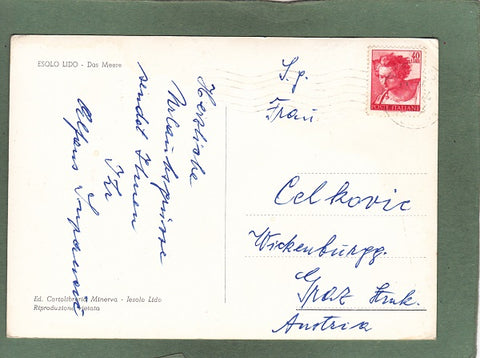 ESOLO LIDO - Das Meere
Herzliche
Urlaubsgrüsse
sendet Ihnen
Ihr
Alfons
Ed. Cartolibreria Minerva - Iesolo Lido
Riproduzione vietata
40
POSTE ITALIANE
S.g.
Frau
Celkovic
Wickenburgg.
Graz
Austria